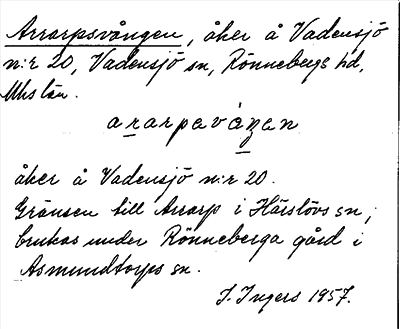 Arrarpsvången, åker å Vadensjö
n:r 20, Vadensjö sn, Rönnebergs hd,
Mhs län.
ararpavåŋen
åker å Vadensjö n:r 20.
Gränsen till Ararp i Härslövs sn;
brukas under Rönneberga gård i
Asmundtorps sn.
I. Ingers 1957.